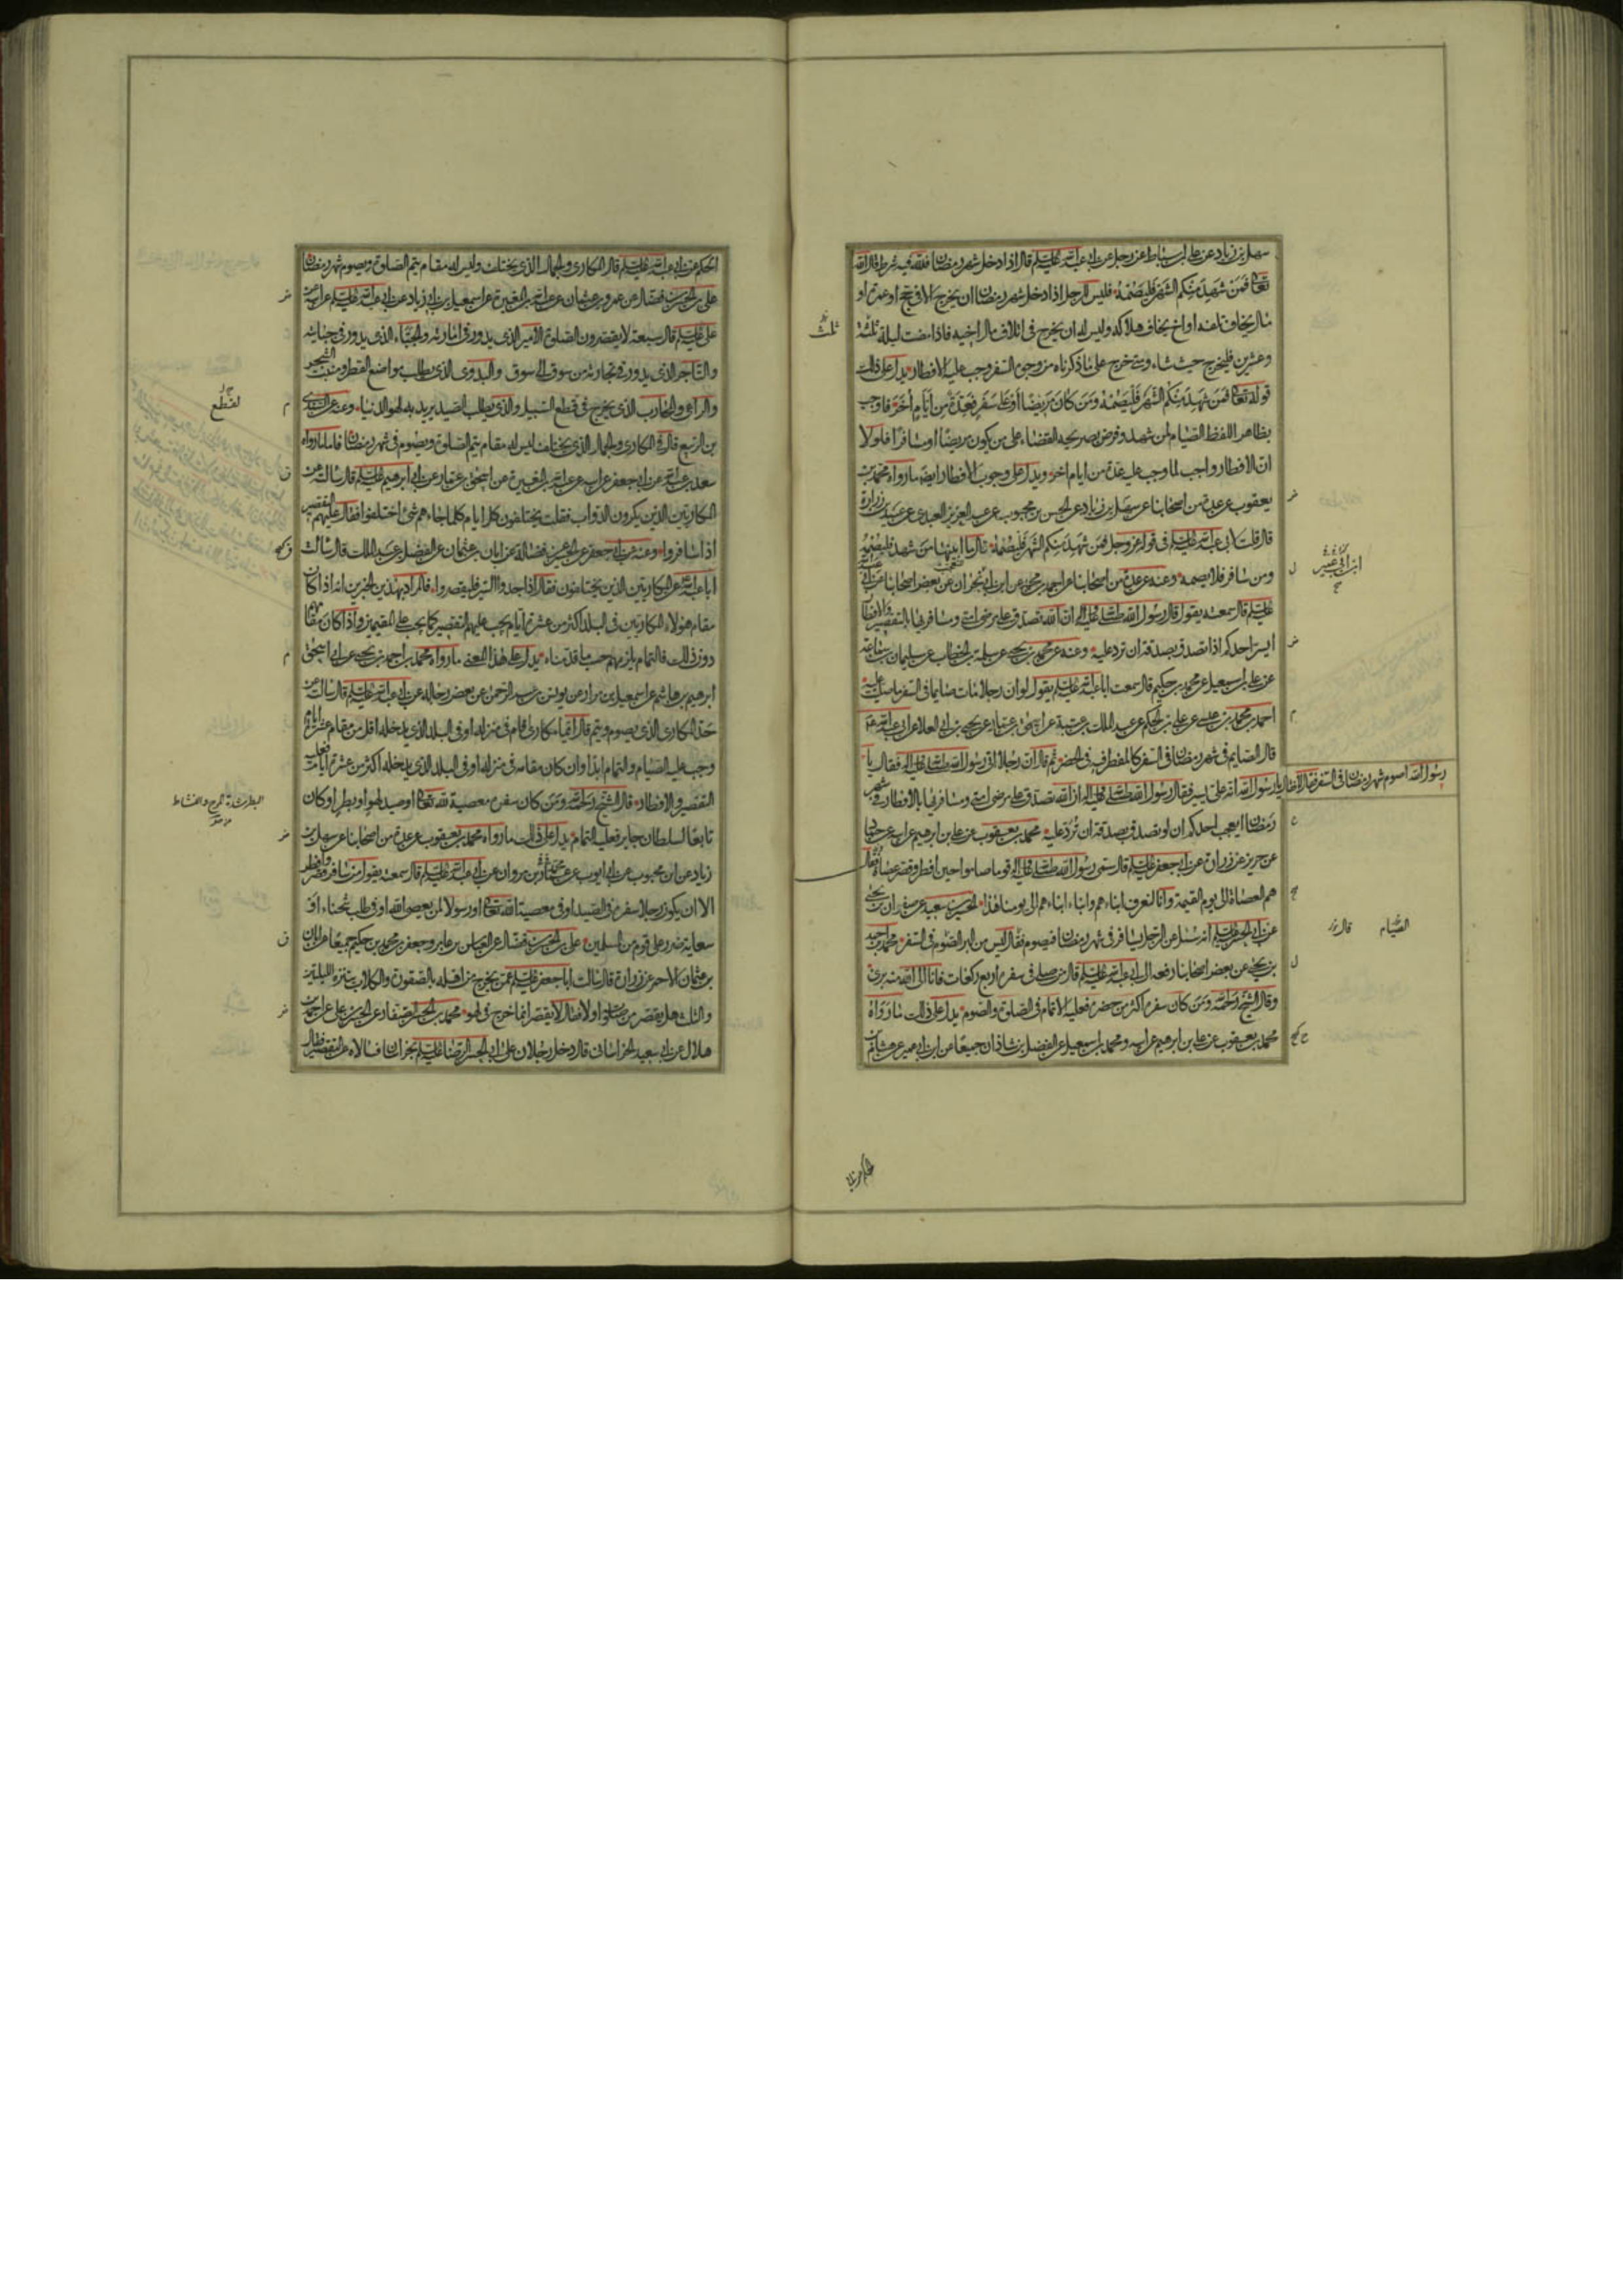 سهل بن زياد عن علي بن اسباط عن رجل عن ابي عبد الله عليه السلم قال اذا دخل شهر رمضان فلله فيه شرط قال الله
تعالى فمن شهد منكم الشهر فليصمه فليس للرجل اذا دخل شهر رمضان ان يخرج الا في حج او عمرة او
مال يخاف تلفه او اخ يخاف هلاكه وليس له ان يخرج في اتلاف مال اخيه فاذا مضت ليلة ثلثة
وعشرين فليخرج حيث شاء ومتى خرج على ما ذكرناه من وجوه السفر وجب عليه الافطار يدل على ذلك
قوله تعالى فمن شهد منكم الشهر فليصمه ومن كان مريضا او على سفر فعدة من ايام اخر فاوجب
بظاهر اللفظ الصيام لمن شهد وفرض بصريحه القضاء على من يكون مريضا او مسافرا فلولا
ان الافطار واجب لما وجب عليه عدة من ايام اخر ويدل على وجوب الافطار ايضا ما رواه محمد بن
يعقوب عن عدة من اصحابنا عن سهل بن زياد عن الحسن بن محبوب عن عبد العزيز العبدي عن عبيد بن زرارة
قال قلت لابي عبد الله عليه السلم في قوله عز وجل فمن شهد منكم الشهر فليصمه قال ما ابينها من شهد فليصمه
ومن سافر فلا يصمه وعنه عن عدة من اصحابنا عن احمد بن محمد عن ابن ابي نجران عن بعض اصحابنا عن ابي عبد الله
عليه السلم قال سمعته يقول قال رسول الله صلى الله عليه واله ان الله تصدق على مرضى امتي ومسافريها بالتقصير والافطار
ايسر احدكم اذا تصدق بصدقة ان ترد عليه وعنه عن محمد بن يحيى عن سلمة بن الخطاب عن سليمان بن سماعة
عن علي بن اسمعيل عن محمد بن حكيم قال سمعت ابا عبد الله عليه السلم يقول لو ان رجلا مات صايما في السفر ما صليت عليه
احمد بن محمد بن عيسى عن علي بن الحكم عن عبد الملك بن عتبة عن اسحق بن عمار عن يحيى بن ابي العلا عن ابي عبد الله
قال الصايم في شهر رمضان في السفر كالمفطر فيه في الحضر ثم قال ان رجلا اتى رسول الله صلى الله عليه واله فقال يا
رسول الله اصوم شهر رمضان في السفر فقال لا فقال يا رسول الله انه علي يسير فقال رسول الله صلى الله عليه واله ان الله تصدق على مرضى امتي ومسافريها بالافطار في شهر
رمضان ايعجب احدكم ان لو تصدق بصدقة ان ترد عليه محمد بن يعقوب عن علي بن ابراهيم عن ابيه عن حماد
عن حريز عن زرارة عن ابي جعفر عليه السلم قال سمى رسول الله صلى الله عليه واله قوما صاموا حين افطر وقصر عصاة فقال
هم العصاة الى يوم القيمة وانا لنعرف ابناءهم وابناء ابناءهم الى يومنا هذا الحسين بن سعيد عن صفوان بن يحيى
عن ابي الحسن عليه السلم انه سئل عن الرجل يسافر في شهر رمضان فيصوم فقال ليس من البر الصوم في السفر محمد بن احمد
بن يحيى عن بعض اصحابنا رفعه الى ابي عبد الله عليه السلم قال من صلى في سفره اربع ركعات فانا الى الله منه بريء
وقال الشيخ رحمه الله ومن كان سفره اكثر من حضره فعليه الاتمام في الصلوة والصوم يدل على ذلك ما رواه
محمد بن يعقوب عن علي بن ابراهيم عن ابيه ومحمد بن اسمعيل عن الفضل بن شاذان جميعا عن ابن ابي عمير عن هشام بن
ثلث
الصيام
الحكم عن ابي عبد الله عليه السلم قال المكاري والجمال الذي يختلف وليس له مقام يتم الصلوة ويصوم شهر رمضان
علي بن الحسن بن فضال عن عمرو بن عثمان عن عبد الله بن المغيرة عن اسمعيل بن ابي زياد عن ابي عبد الله عليه السلم عن ابيه عن
علي عليه السلم قال سبعة لا يقصرون الصلوة الامير الذي يدور في امارته والجباء الذي يدور في جبايته
والتاجر الذي يدور في تجارته من سوق الى سوق والبدوي الذي يطلب مواضع القطر ومنبت الشجر
والراعي والمحارب الذي يخرج في قطع السبيل والذي يطلب الصيد يريد به لهو الدنيا وعنه عن السندي
بن الربيع قال في المكاري والجمال الذي يختلف ليس له مقام يتم الصلوة ويصوم في شهر رمضان فاما ما رواه
سعد بن عبد الله عن ابي جعفر عن ابيه عن عبد الله بن المغيرة عن اسحق بن عمار عن ابي ابراهيم عليه السلم قال سالته عن
المكاريين الذين يكرون الدواب فقلت يختلفون كل ايام كلما جاءهم شئ اختلفوا فقال عليهم التقصير
اذا سافروا وعنه عن ابي جعفر عن الحسين عن فضالة عن ابان بن عثمان عن الفضل بن عبد الملك قال سالت
ابا عبد الله عن المكاريين الذين يختلفون فقال اذا جدوا السير فليقصروا فالمراد بهذين الخبرين انه اذا كان
مقام هؤلاء المكاريين في البلد اكثر من عشرة ايام يجب عليهم التقصير كما يجب على المقيمين واذا كان مقامهم
دون ذلك فالتمام يلزمهم حسب ما قدمناه يدل على هذا المعنى ما رواه محمد بن احمد بن يحيى عن ابي اسحق
ابراهيم بن هاشم عن اسمعيل بن مرار عن يونس بن عبد الرحمن عن بعض رجاله عن ابي عبد الله عليه السلم قال سالته عن
حد المكاري الذي يصوم ويتم قال ايما مكاري اقام في منزله او في البلد الذي يدخله اقل من مقام عشرة ايام
وجب عليه الصيام والتمام ابدا وان كان مقامه في منزله او في البلد الذي يدخله اكثر من عشرة ايام فعليه
التقصير والافطار قال الشيخ رحمه الله ومن كان سفره معصية لله تعالى او صيد لهو او بطر او كان
تابعا لسلطان جاير فعليه التمام يدل على ذلك ما رواه محمد بن يعقوب عن عدة من اصحابنا عن سهل بن
زياد عن ابن محبوب عن ابي ايوب عن عمار بن مروان عن ابي عبد الله عليه السلم قال سمعته يقول من سافر قصر وافطر
الا ان يكون رجلا سفره في الصيد او في معصية الله تعالى او رسولا لمن يعصي الله او في طلب شحناء او
سعاية ضرر على قوم من المسلمين علي بن الحسن بن فضال عن العباس بن عامر وجعفر بن محمد بن حكيم جميعا عن ابان
بن عثمان الاحمر عن زرارة قال سالت ابا جعفر عليه السلم عمن يخرج من اهله بالصقورة والكلاب يتنزه الليلتين
والثلث هل يقصر من صلوته او لا فقال لا يقصر انما خرج في لهو محمد بن الحسن الصفار عن الحسن بن علي عن احمد بن
هلال عن ابي سعيد الخراساني قال دخل رجلان على ابي الحسن الرضا عليه السلم بخراسان فسالاه عن التقصير فقال
لقطع
البطر شدة المرح والنشاط